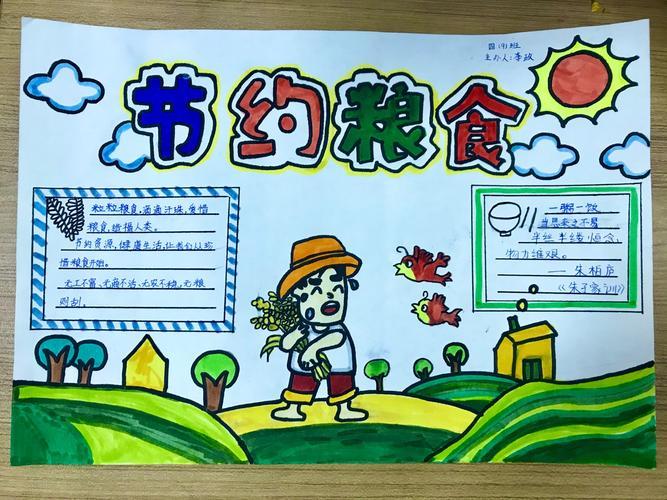 四(9)班
主办人:李政
节约粮食
粒粒粮食,滴滴汗珠,爱惜
粮食,造福人类。
节约资源,健康生活,让我们从珍
惜粮食开始。
无工不富、无商不活、无农不稳,无粮
则乱。
一粥一饭
当思来之不易
半丝半缕恒念,
物力维艰。
——朱柏庐
《朱子家训》